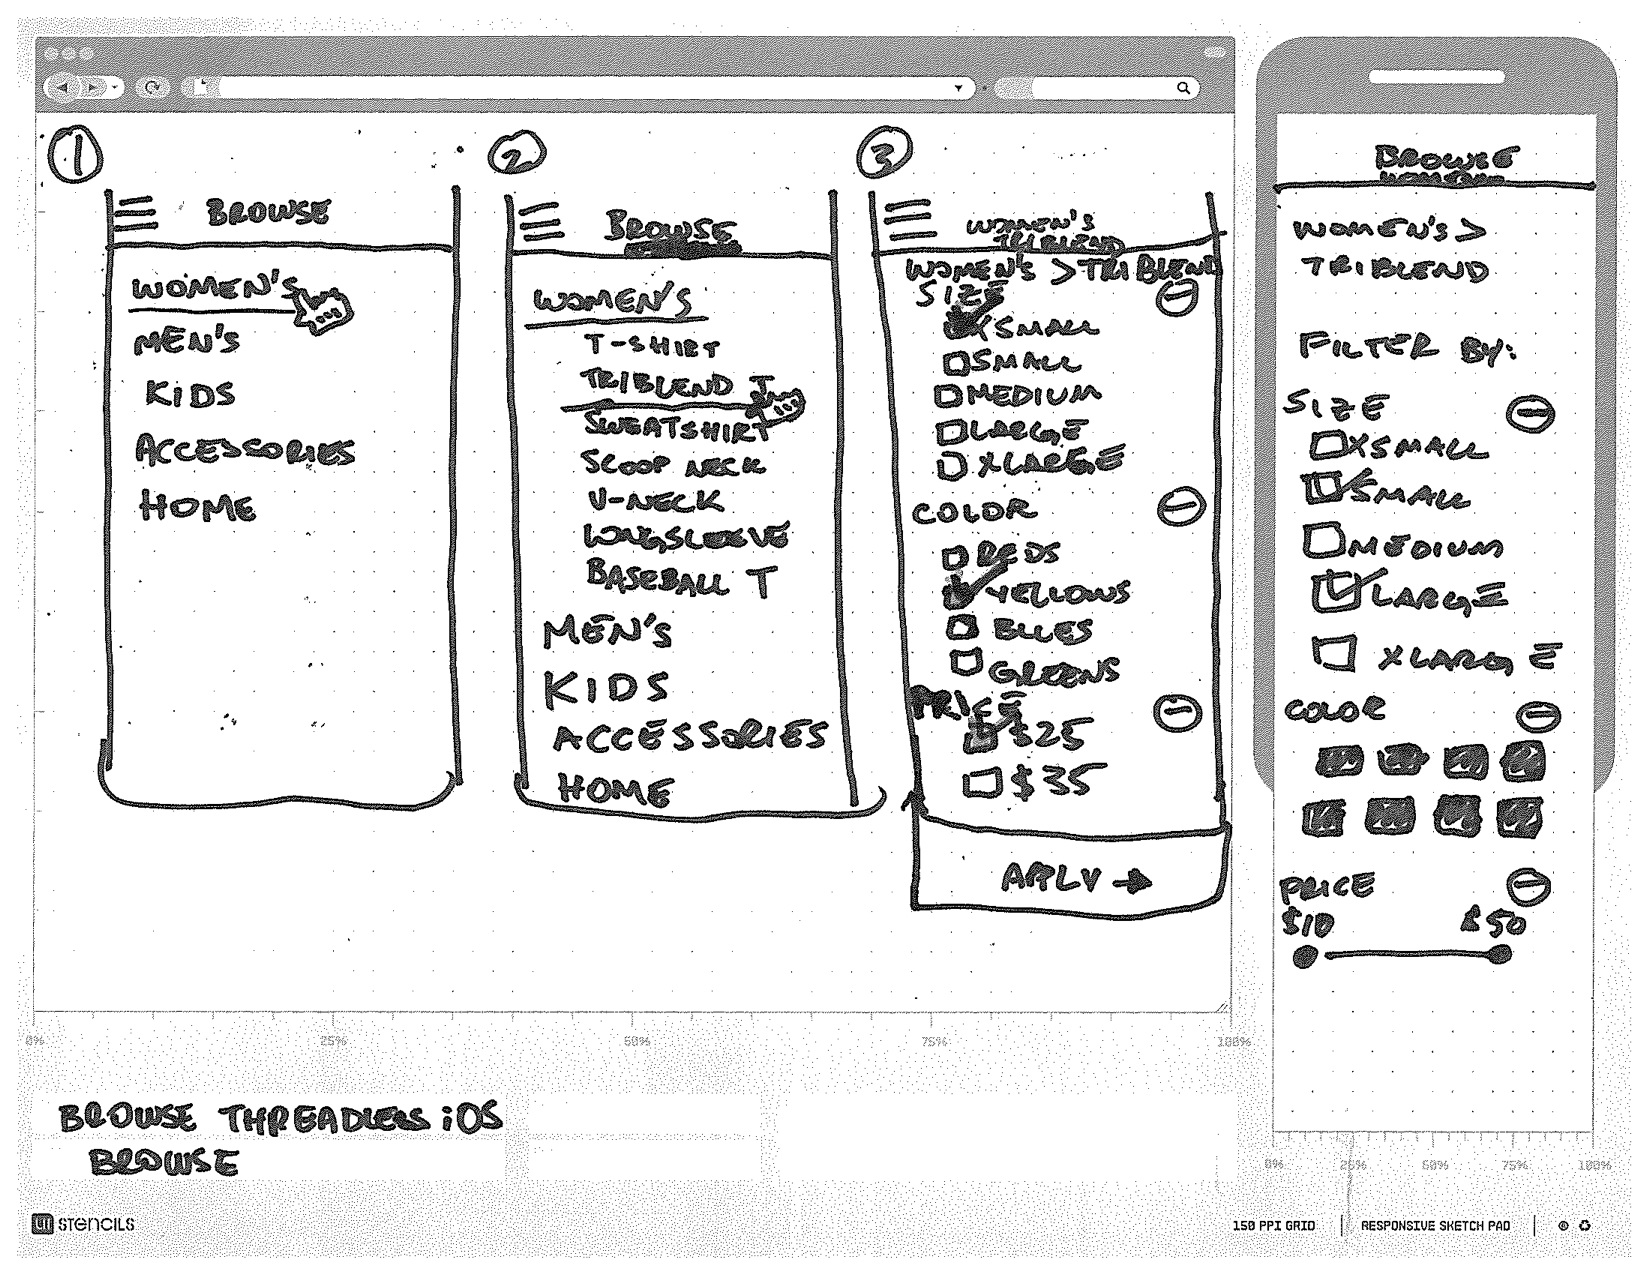 1
BROWSE
WOMEN'S
MEN'S
KIDS
ACCESSORIES
HOME
2
BROWSE
WOMEN'S
T-SHIRT
TRIBLEND T
SWEATSHIRT
SCOOP NECK
V-NECK
LONGSLEEVE
BASEBALL T
MEN'S
KIDS
ACCESSORIES
HOME
3
WOMEN'S
TRIBLEND
WOMEN'S > TRIBLEND
SIZE
XSMALL
SMALL
MEDIUM
LARGE
XLARGE
COLOR
REDS
YELLOWS
BLUES
GREENS
PRICE
$25
$35
APPLY →
BROWSE
WOMEN'S >
TRIBLEND
FILTER BY:
SIZE
XSMALL
SMALL
MEDIUM
LARGE
XLARGE
COLOR
PRICE
$10 $50
0% 25% 50% 75% 100%
0% 25% 50% 75% 100%
BROWSE THREADLESS iOS
BROWSE
UI STENCILS
150 PPI GRID | RESPONSIVE SKETCH PAD